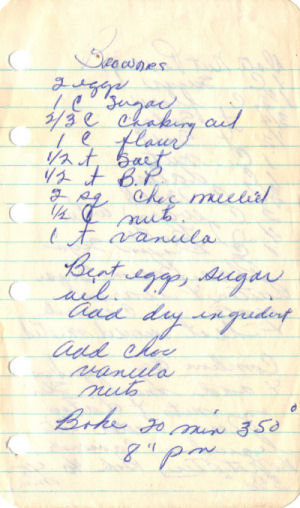 Brownies
2 eggs
1 C Sugar
2/3 C Cooking oil
1 C flour
1/2 t Salt
1/2 t B.P.
2 sq choc melted
1/2 C nuts.
1 t vanilla
Beat eggs, sugar
oil.
Add dry ingredient
Add choc
vanilla
nuts
Bake 20 min 350°
8" pan